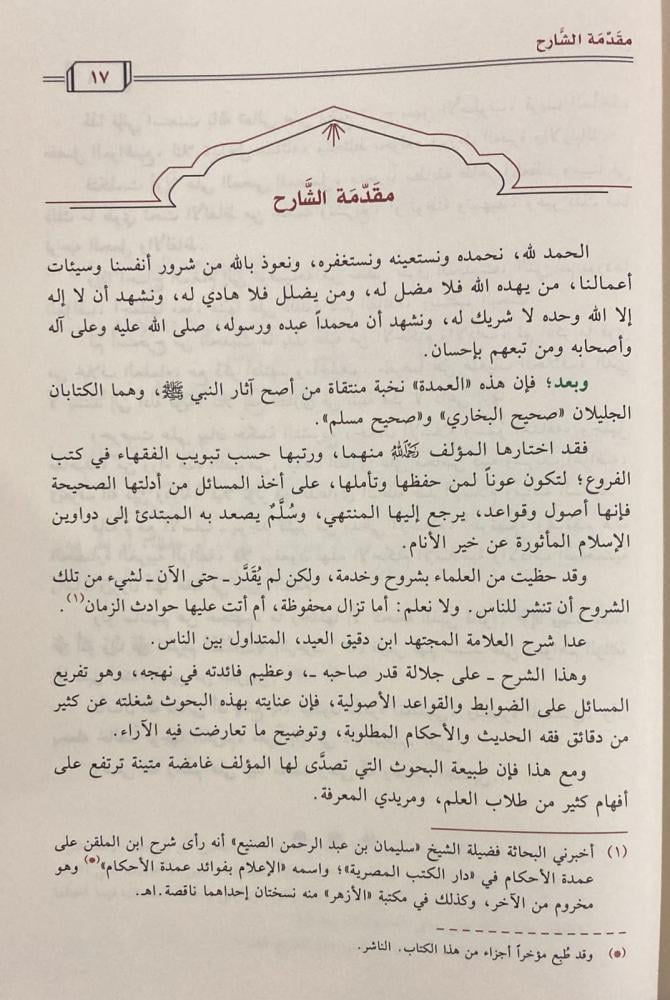 مقَدّمَة الشَّارح
١٧
مقَدّمَة الشَّارح
الحمد لله، نحمده ونستعينه ونستغفره، ونعوذ بالله من شرور أنفسنا وسيئات
أعمالنا، من يهده الله فلا مضل له، ومن يضلل فلا هادي له، ونشهد أن لا إله
إلا الله وحده لا شريك له، ونشهد أن محمداً عبده ورسوله، صلى الله عليه وعلى آله
وأصحابه ومن تبعهم بإحسان.
وبعد؛ فإن هذه «العمدة» نخبة منتقاة من أصح آثار النبي ﷺ، وهما الكتابان
الجليلان «صحيح البخاري» و«صحيح مسلم».
فقد اختارها المؤلف رَحِمَهُ اللهُ منهما، ورتبها حسب تبويب الفقهاء في كتب
الفروع؛ لتكون عوناً لمن حفظها وتأملها، على أخذ المسائل من أدلتها الصحيحة
فإنها أصول وقواعد، يرجع إليها المنتهي، وسُلَّمٌ يصعد به المبتدئ إلى دواوين
الإسلام المأثورة عن خير الأنام.
وقد حظيت من العلماء بشروح وخدمة، ولكن لم يُقَدَّر ـ حتى الآن ـ لشيء من تلك
الشروح أن تنشر للناس. ولا نعلم: أما تزال محفوظة، أم أتت عليها حوادث الزمان(١).
عدا شرح العلامة المجتهد ابن دقيق العيد، المتداول بين الناس.
وهذا الشرح ـ على جلالة قدر صاحبه ـ، وعظيم فائدته في نهجه، وهو تفريع
المسائل على الضوابط والقواعد الأصولية، فإن عنايته بهذه البحوث شغلته عن كثير
من دقائق فقه الحديث والأحكام المطلوبة، وتوضيح ما تعارضت فيه الآراء.
ومع هذا فإن طبيعة البحوث التي تصدَّى لها المؤلف غامضة متينة ترتفع على
أفهام كثير من طلاب العلم، ومريدي المعرفة.
(١) أخبرني البحاثة فضيلة الشيخ «سليمان بن عبد الرحمن الصنيع» أنه رأى شرح ابن الملقن على
عمدة الأحكام في «دار الكتب المصرية»؛ واسمه «الإعلام بفوائد عمدة الأحكام»(*) وهو
مخروم من الآخر، وكذلك في مكتبة «الأزهر» منه نسختان إحداهما ناقصة.اهـ.
(*) وقد طُبع مؤخراً أجزاء من هذا الكتاب. الناشر.